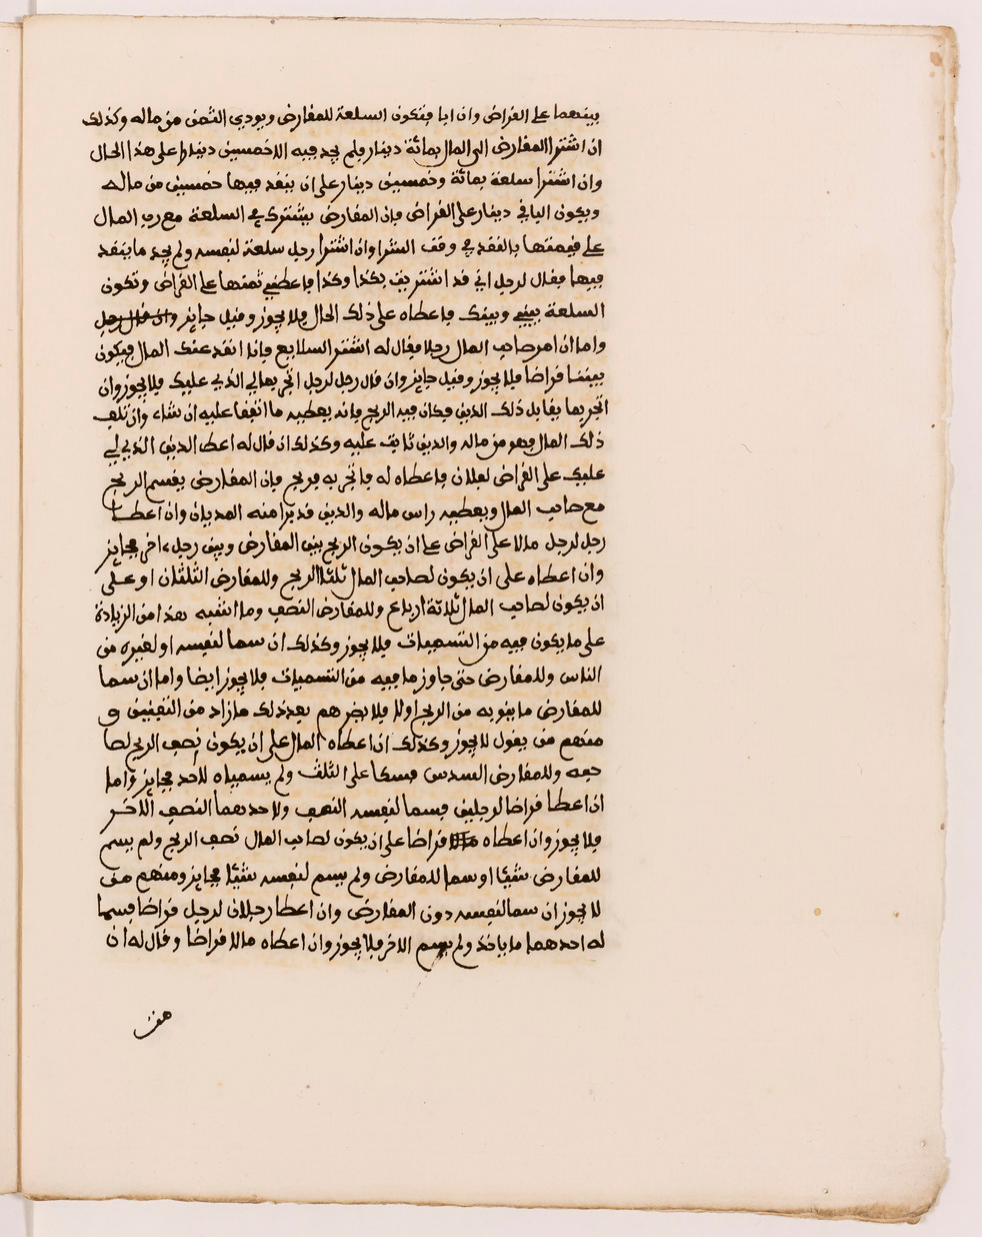 بينهما على القراض وان ابا فتكون السلعة للمقارض ويودي الثمن من ماله وكذلك
ان اشترا المقارض الى المال بمائة دينار ولم يجد فيه الا خمسين دينارا على هذا الحال
وان اشترا سلعة بمائة وخمسين دينار على ان ينقد فيها خمسين من ماله
ويكون الباقي دينار على القراض فان المقارض يشترك في السلعة مع رب المال
على قيمتها بالنقد في وقت الشرا وان اشترا رجل سلعة لنفسه ولم يجد ما ينقد
فيها فقال لرجل اني قد اشتريت بكذا وكذا فاعطني ثمنها على القراض وتكون
السلعة بيني وبينك فاعطاه على ذلك الحال فلا يجوز وقيل جايز وان قال رجل
واما ان امر صاحب المال رجلا فقال له اشتر السلايع فانا انقد عنك المال فيكون
بيننا قراضا فلا يجوز وقيل جايز وان قال رجل لرجل اتجر بمالي الذي عليك فلا يجوز وان
اتجر بما يقابل ذلك الدين فكان فيه الربح فانه يعطيه ما اتفقا عليه ان شاء وان تلف
ذلك المال فهو من ماله والدين ثابت عليه وكذلك ان قال له اعط الدين الذي لي
عليك على القراض لفلان فاعطاه له فاتجر به فربح فان المقارض يقسم الربح
مع صاحب المال ويعطيه راس ماله والدين قد برا منه المديان وان اعطا
رجل لرجل مالا على القراض على ان يكون الربح بين المقارض وبين رجل ءاخر فجايز
وان اعطاه على ان يكون لصاحب المال ثلثا الربح وللمقارض الثلثان او على
ان يكون لصاحب المال ثلاثة ارباع وللمقارض النصف وما اشبه هذا من الزيادة
على ما يكون فيه من التسميات فلا يجوز وكذلك ان سما لنفسه او لغيره من
الناس وللمقارض حتى جاوز ما فيه من التسميات فلا يجوز ايضا واما ان سما
للمقارض ما ينوبه من الربح اولا فلا يضرهم بعد ذلك ما زاد من و
منهم من يقول لا يجوز وكذلك ان اعطاه المال على ان يكون نصف الربح لصا
حبه وللمقارض السدس فسكتا على الثلث ولم يسمياه لاحد فجايز واما
ان اعطا قراضا لرجلين فسما لنفسه النصف ولاحدهما النصف الاخر
فلا يجوز وان اعطاه قراضا على ان يكون لصاحب المال نصف الربح ولم يسم
للمقارض شيئا او سما للمقارض ولم يسم لنفسه شيئا فجايز ومنهم من
لا يجوز ان سما لنفسه دون المقارض وان اعطا رجلان لرجل قراضا فسما
له احدهما ما ياخذ ولم يسم الاخر فلا يجوز وان اعطاه مالا قراضا وقال له ان